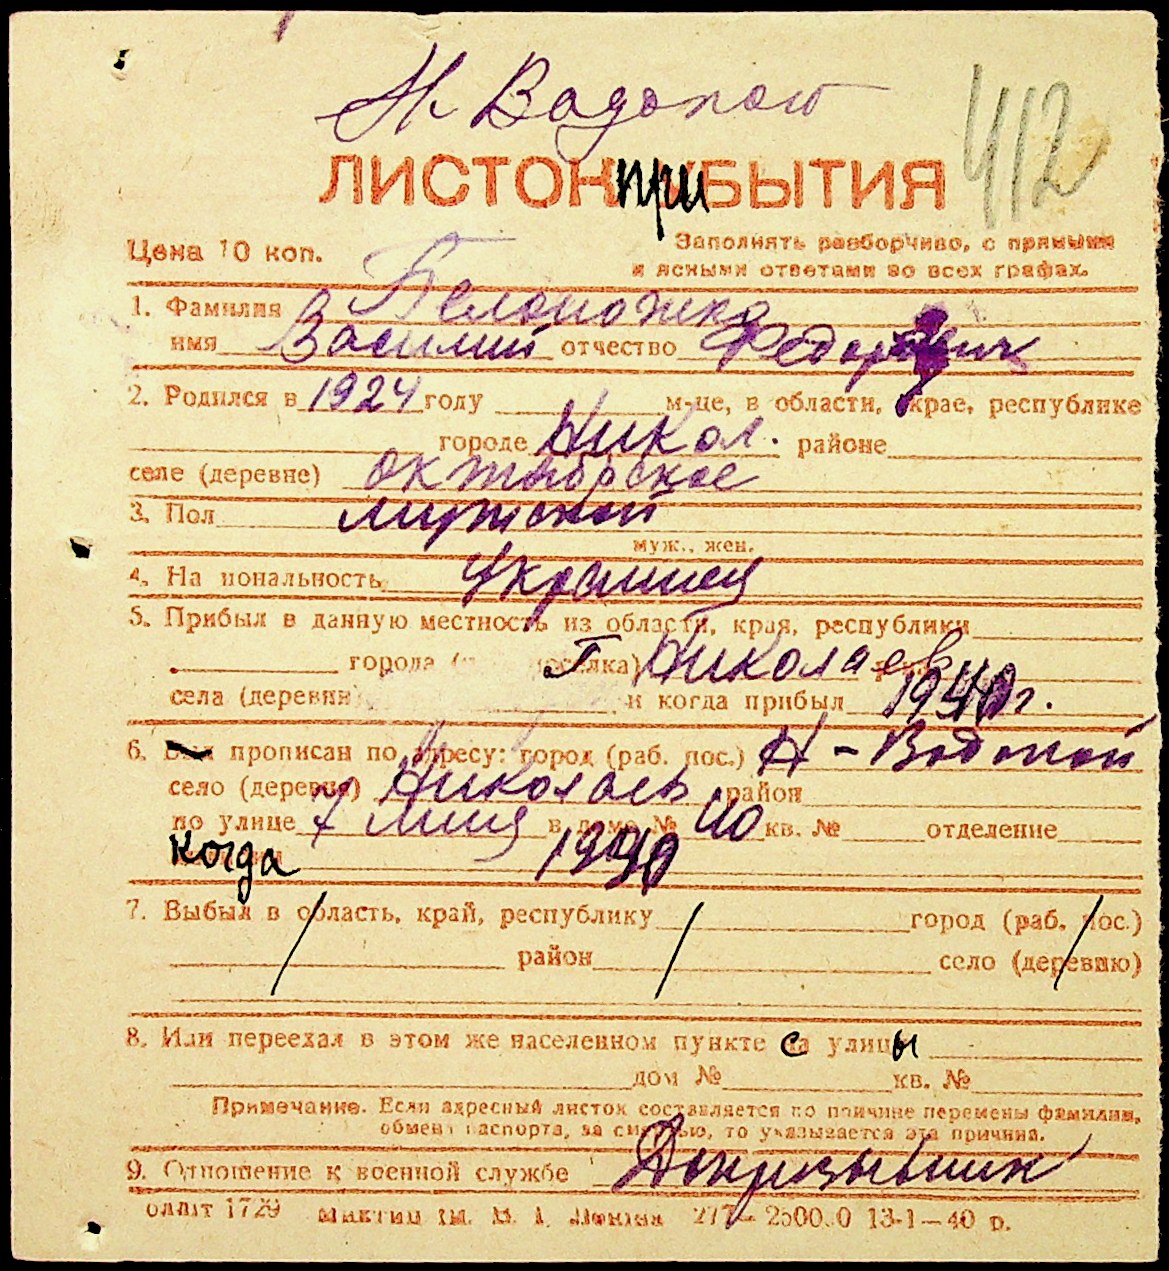 Н. Водопой
412
ЛИСТОК ПРИБЫТИЯ
Цена 10 коп.
Заполнять разборчиво, с прямыми
и ясными ответами во всех графах.
1. Фамилия Белоножко
имя Василий отчество Федорович
2. Родился в 1924 году м-це, в области, крае, республике
городе Никол. районе
селе (деревне) октябрьское
3. Пол мужской
муж., жен.
4. Национальность Украинец
5. Прибыл в данную местность из области, края, республики
города Г. Николаев
села (деревни) и когда прибыл 1940 г.
6. прописан по адресу: город (раб. пос.) Н-Водопой
село (деревня) Николаев район
по улице 7 Линия в доме № 40 кв. № отделение
когда 1940
7. Выбыл в область, край, республику город (раб. пос.)
район село (деревню)
8. Или переехал в этом же населенном пункте с улицы
дом № кв. №
Примечание. Если адресный листок составляется по причине перемены фамилии,
обмена паспорта, за смертью, то указывается эта причина.
9. Отношение к военной службе Допризывник
1729 277— 13-1—40 р.